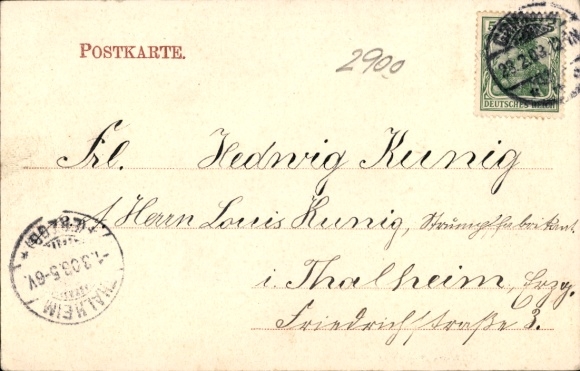 POSTKARTE.
2900
5
DEUTSCHES REICH
23.2.03.
Frl. Hedwig Kunig
/ Herrn Louis Kunig, Strumpffabrikant
i. Thalheim, Erzg.
Friedrichstraße 3.
-1.3.03.5-6V.
THALHEIM